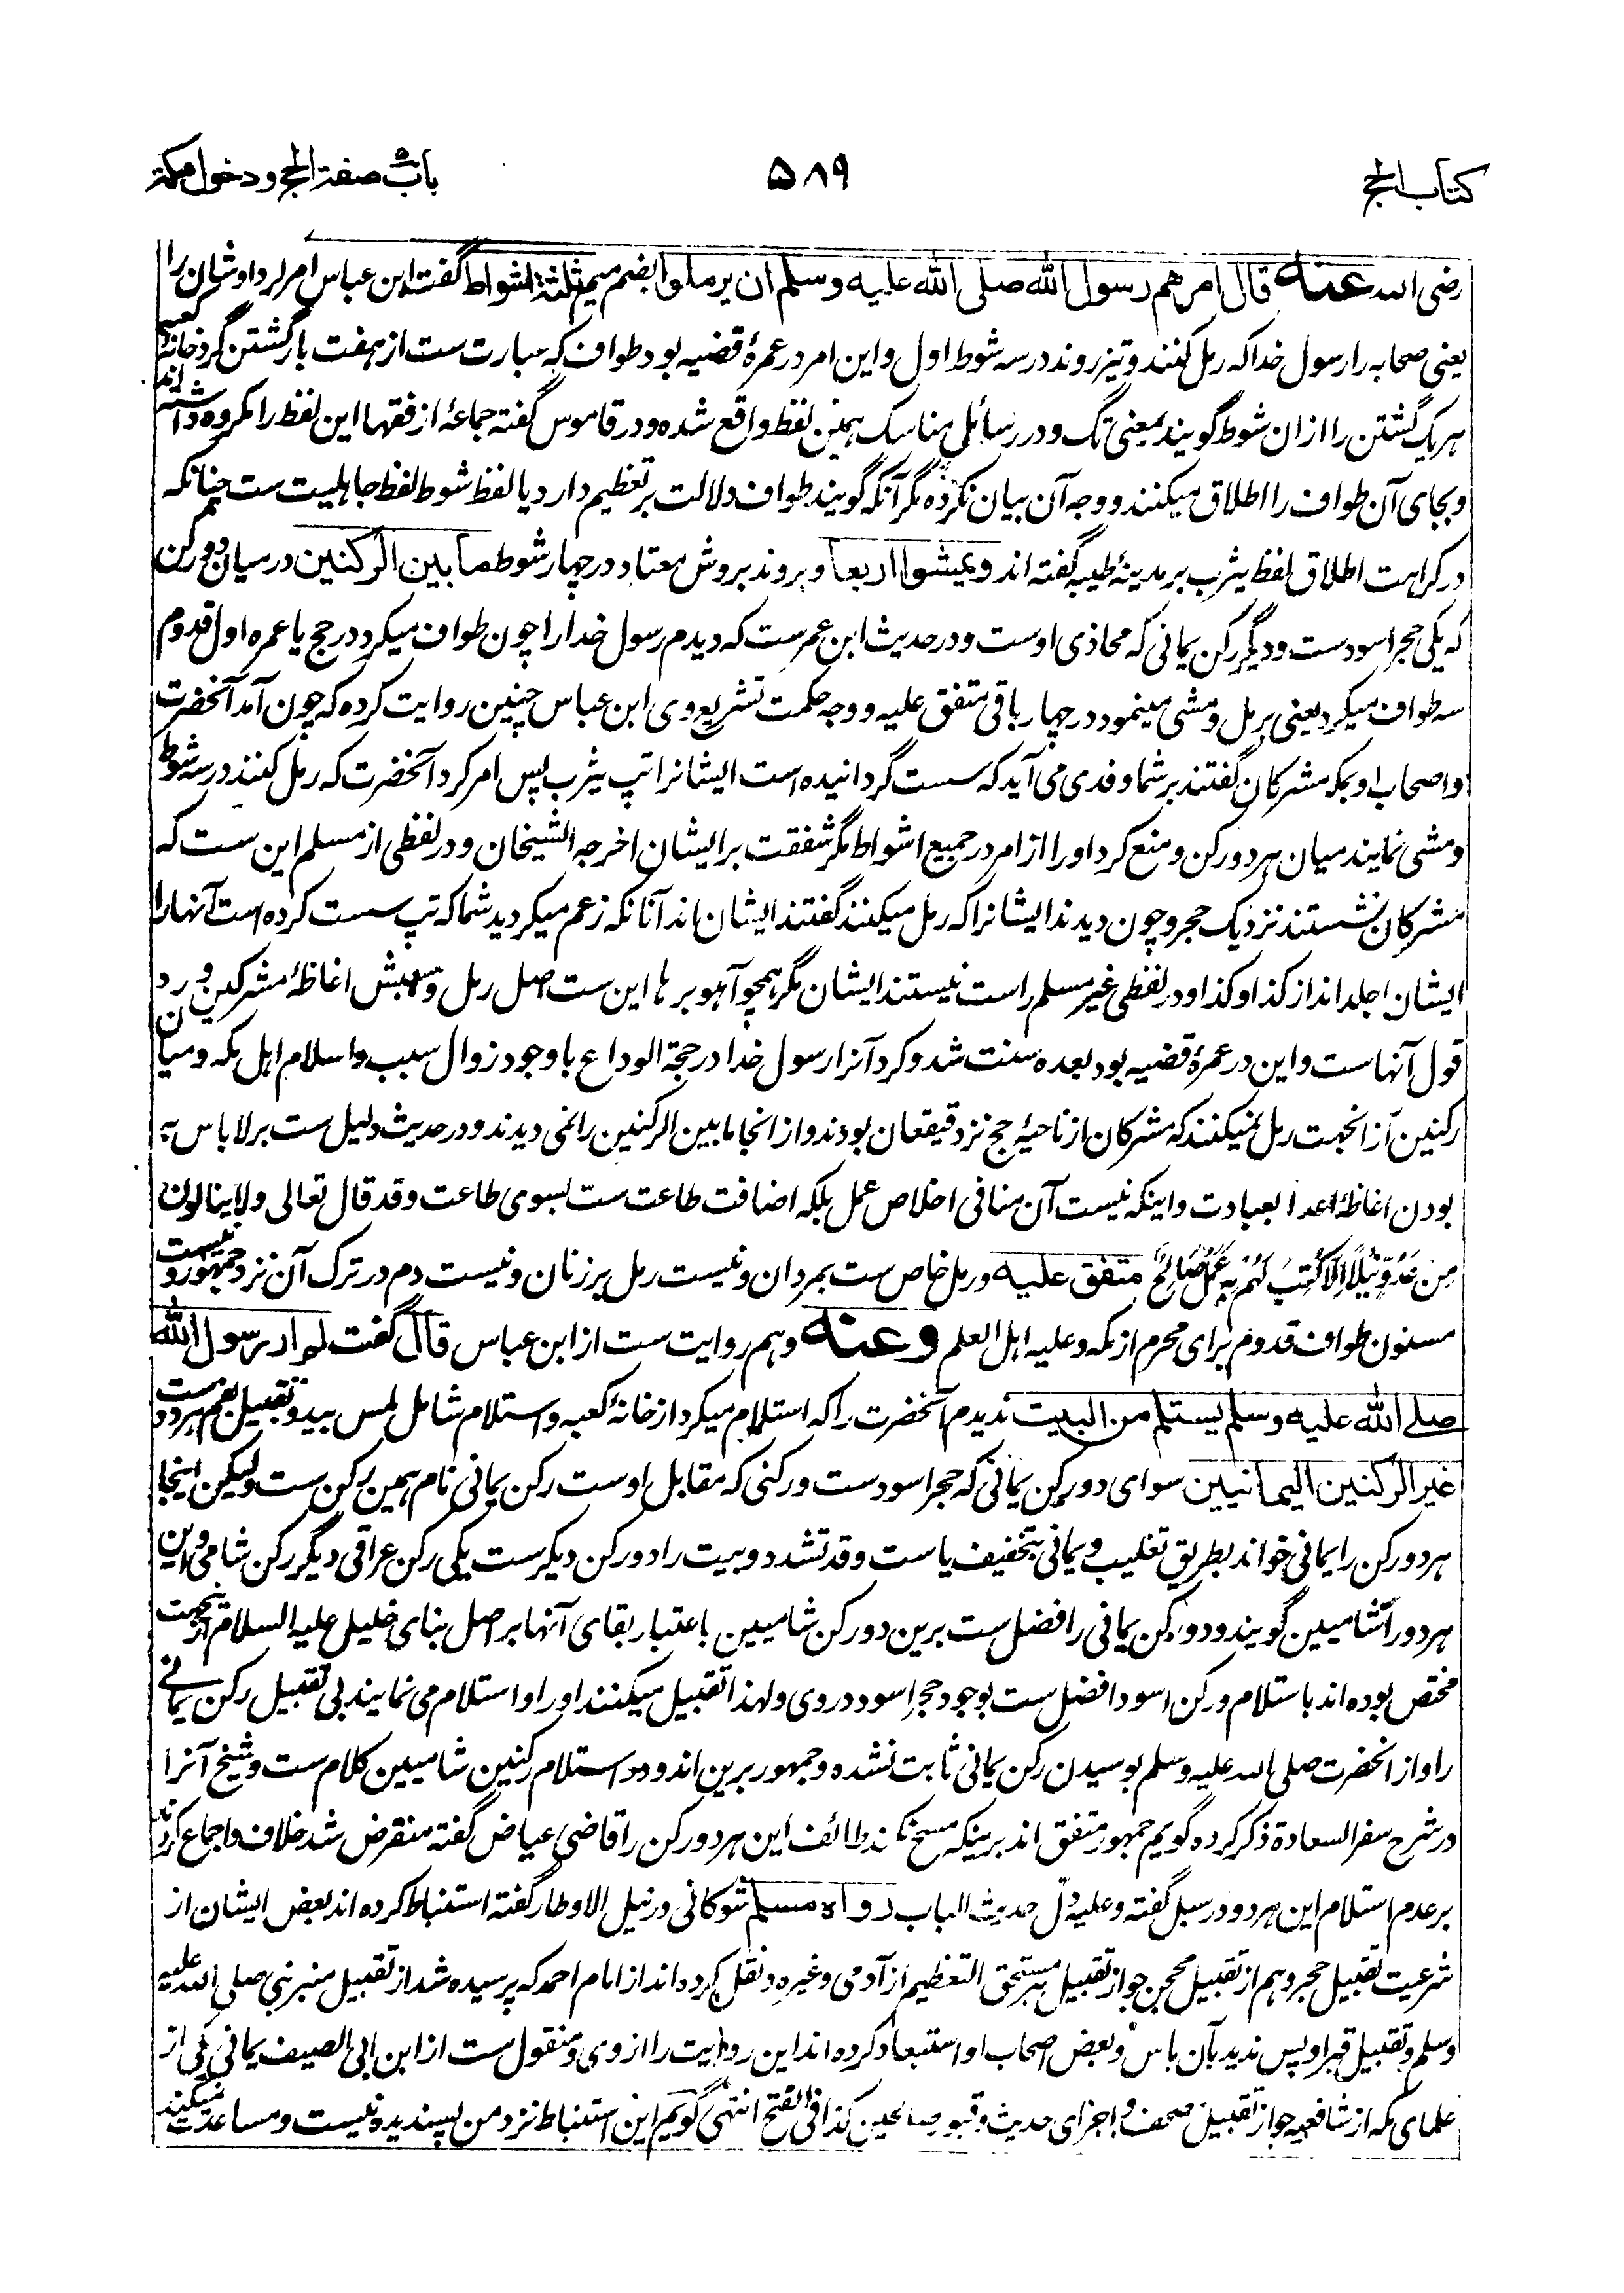 کتاب الحج ۵۸۹ باب صفة الحج و دخول مکة
رضی الله عنه قال امرهم رسول الله صلی الله علیه وسلم ان یرملوا بضم میم ثلثة اشواط گفت ابن عباس امر کرد اوشان را
یعنی صحابه را رسول خدا که رمل کنند و تیز روند در سه شوط اول و این امر در عمرۀ قضیه بود طواف که عبارت ست از هفت بار گشتن گرد خانۀ کعبه
هر یک گشتن را ازان شوط گویند بمعنی تگ و در رسائل مناسک همین لفظ واقع شده و در قاموس گفته جماعۀ از فقها این لفظ را مکروه داشته اند
و بجای آن طواف را اطلاق میکنند و وجه آن بیان نکرده مگر آنکه گویند طواف دلالت بر تعظیم دارد یا لفظ شوط لفظ جاهلیت ست چنانکه
در کراهت اطلاق لفظ یثرب بر مدینۀ طیبه گفته اند ویمشوا اربعا و بروند بروش معتاد در چهار شوط ما بین الرکنین در میان دو رکن
که یکی حجر اسود ست و دیگر رکن یمانی که محاذی اوست و در حدیث ابن عمر ست که دیدم رسول خدا را چون طواف میکرد در حج یا عمره اول قدوم
سه طواف میکرد یعنی برمل و مشی مینمود در چهار باقی متفق علیه و وجه حکمت تشریع وی ابن عباس چنین روایت کرده که چون آمد آنحضرت
و اصحاب او بمکه مشرکان گفتند بر شما وفدی می آید که سست گردانیده است ایشانرا تپ یثرب پس امر کرد آنحضرت که رمل کنند در سه شوط
و مشی نمایند میان هر دو رکن و منع کرد او را از امر در جمیع اشواط مگر شفقت بر ایشان اخرجه الشیخان و در لفظی از مسلم این ست که
مشرکان نشستند نزدیک حجر و چون دیدند ایشانرا که رمل میکنند گفتند ایشان اند آنانکه زعم میکردید شما که تپ سست کرده است آنها را
ایشان اجلد اند از کذا و کذا و در لفظی غیر مسلم راست نیستند ایشان مگر همچو آهو برها این ست اصل رمل و سببش اغاظۀ مشرکین و رد
قول آنهاست و این در عمرۀ قضیه بود بعده سنت شد و کرد آنرا رسول خدا در حجة الوداع با وجود زوال سبب و اسلام اهل مکه و میان
رکنین از انجهت رمل نمیکنند که مشرکان از ناحیۀ حج نزد قیقعان بودند و از انجا ما بین الرکنین را نمی دیدند و در حدیث دلیل ست بر لا باس به
بودن اغاظۀ اعدا بعبادت و اینکه نیست آن منافی اخلاص عمل بلکه اضافت طاعت ست بسوی طاعت و قد قال تعالی ولا ینالون
مِن عَدُوٍّ نَیلًا اِلّا کُتِبَ لَهُم بِهِ عَمَلٌ صَالِحٌ متفق علیه و رمل خاص ست بمردان و نیست رمل بر زنان و نیست دم در ترک آن نزد جمهور و نیست
مسنون طواف قدوم برای محرم از مکه و علیه اهل العلم وعنه و هم روایت ست از ابن عباس قال گفت لم ار رسول الله
صلے الله علیه وسلم یستلم من البیت ندیدم آنحضرت را که استلام میکرد از خانۀ کعبه و استلام شامل لمس بید و تقبیل بفم هر دو ست
غیر الرکنین الیمانیین سوای دو رکن یمانی که حجر اسود ست و رکنی که مقابل اوست رکن یمانی نام همین رکن ست ولیکن اینجا
هر دو رکن را یمانی خواند بطریق تغلیب و یمانی بتخفیف یاست و قد تشدد و بیت را دو رکن دیگر ست یکی رکن عراقی دیگر رکن شامی و این
هر دو را شامیین گویند و دو رکن یمانی را فضل ست برین دو رکن شامیین باعتبار بقای آنها بر اصل بنای خلیل علیه السلام ازینجهت
مختص بوده اند باستلام و رکن اسود افضل ست بوجود حجر اسود در وی و لهذا تقبیل میکنند او را و استلام می نمایند بی تقبیل رکن یمانے
را و از انحضرت صلی الله علیه وسلم بوسیدن رکن یمانی ثابت نشده و جمهور برین اند و در استلام رکنین شامیین کلام ست و شیخ آنرا
در شرح سفر السعادة ذکر کرده گویم جمهور متفق اند برینکه مسح نکند طائف این هر دو رکن را قاضی عیاض گفته منقرض شد خلاف و اجماع کردند
بر عدم استلام این هر دو در سبل گفته و علیه دل حدیث الباب رواه مسلم شوکانی در نیل الاوطار گفته استنباط کرده اند بعض ایشان از
شرعیت تقبیل حجر و هم از تقبیل محجن جواز تقبیل هر مستحق التعظیم از آدمی و غیره و نقل کرده اند از امام احمد که پرسیده شد از تقبیل منبر نبی صلی الله علیه
وسلم و تقبیل قبر او پس ندید بآن باس و بعض اصحاب او استبعاد کرده اند این روایت را از وی و منقول ست از ابن ابی الصیف یمانی یکی از
علمای مکه از شافعیه جواز تقبیل مصحف و اجزای حدیث و قبور صالحین کذا فی الفتح انتهی گویم این استنباط نزد من پسندیده نیست و مساعدت نمیکند